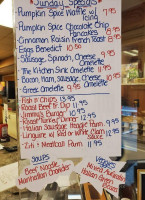 Sunday Specials
Pumpkin Spice Waffle w/ Icing
Pumpkin Spice Chocolate Chip
Pancakes 8.95
Cinnamon Raisin French Toast 8.95
Eggs Benedict 10.50
Sausage, Spinach, Cheese
Omelette 9.95
The Kitchen Sink Omelette 11.95
Bacon, Ham, Sausage, Cheese 10.95
Greek Omelette 9.95
Fish n' Chips 13.95
Roast Beef Dip 11.95
Jimmy's Burger 10.95
Roast Turkey Dinner 12.95
Italian Sausage Hoagie 11.95
Linguine w/ Red or White Clam
Sauce 12.95
Ziti + Meatloaf Parm 11.95
Soups
Beef Noodle
Manhattan Chowder
Veggies